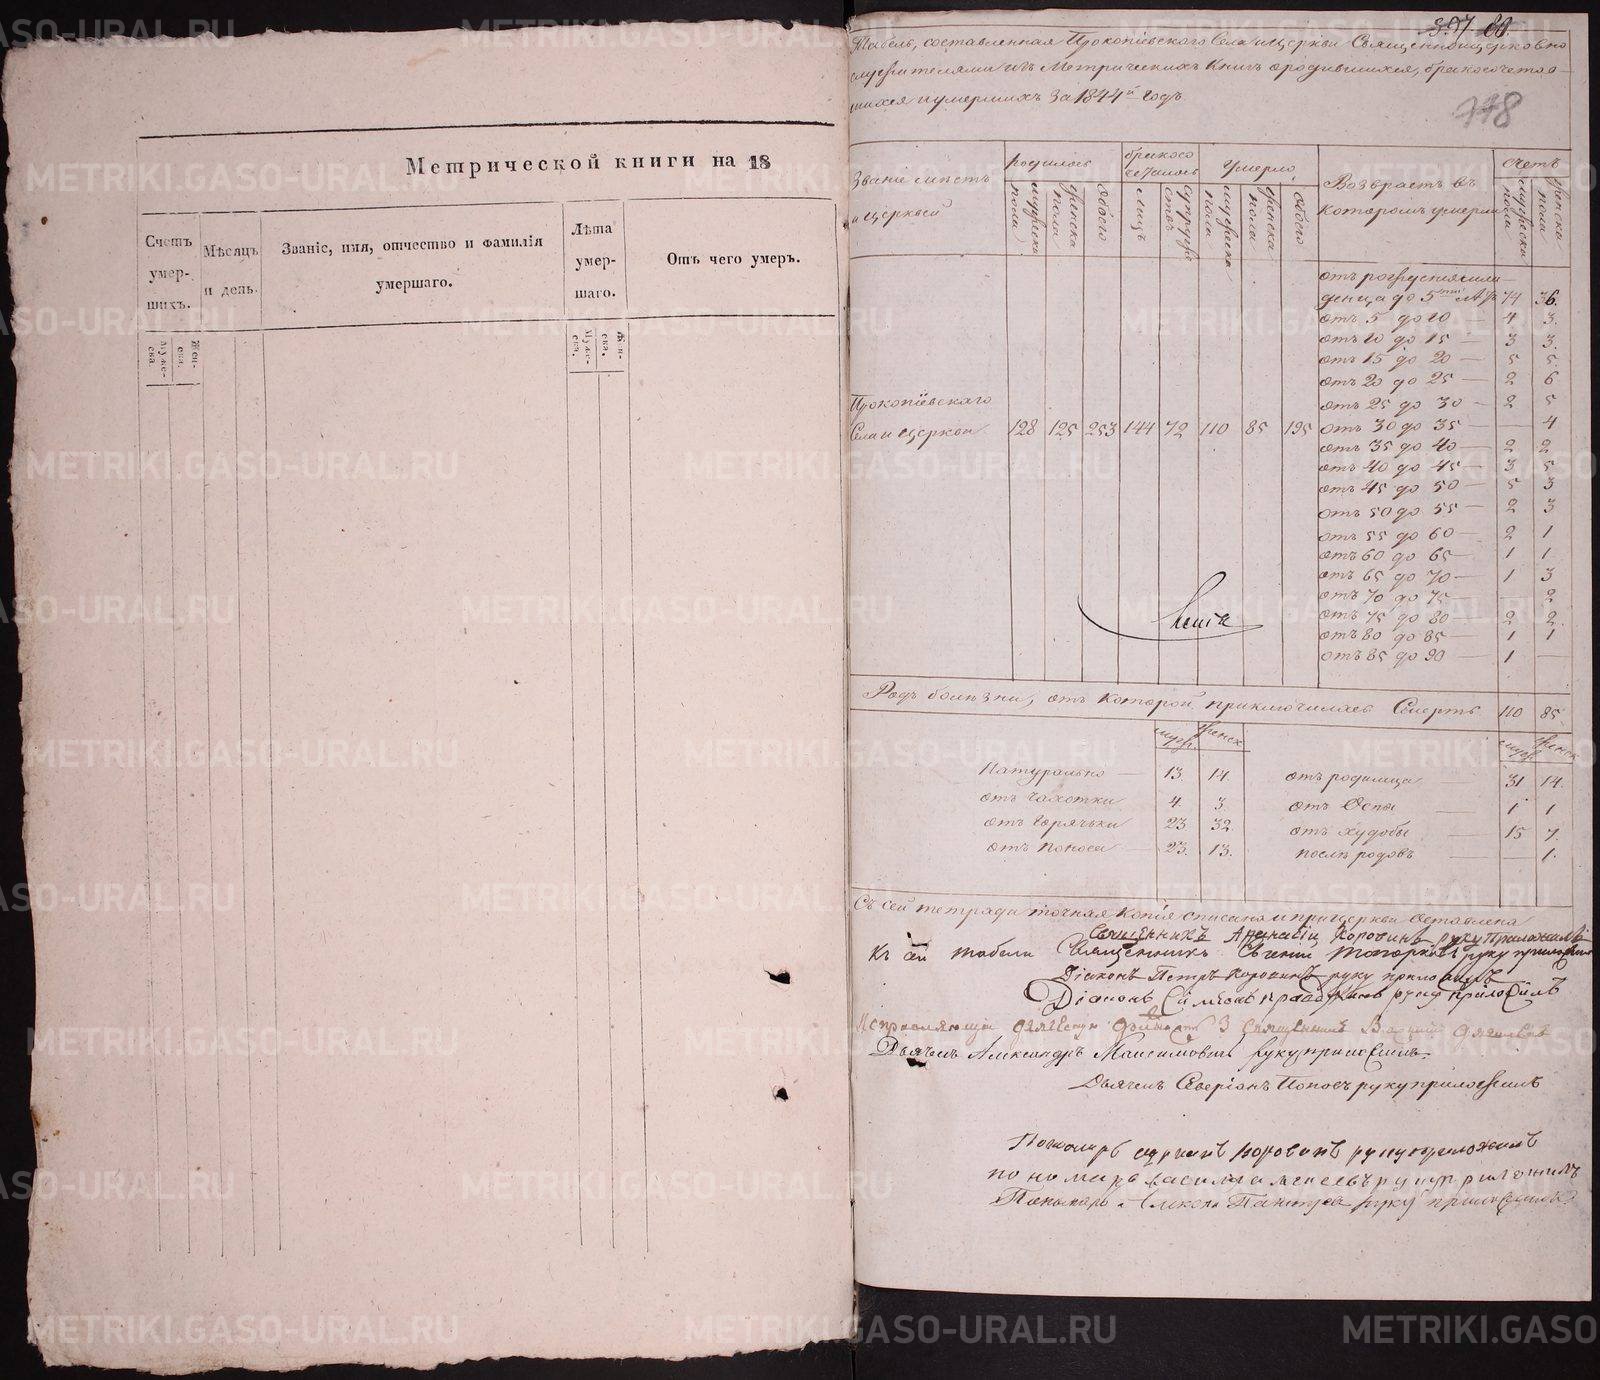 Метрической книги на 18
Счетъ умер-шихъ.
Мѣсяцъ и день.
Званіе, имя, отчество и фамилія умершаго.
Лѣта умер-шаго.
Отъ чего умеръ.
Муже-ска.
Жен-ска.
Муже-ска.
Жен-ска.
397 80
Табель, составленная Прокопіевскаго Села и Церкви Священноцерковно
служителями изъ Метрическихъ Книгъ о родившихся, бракосочетав-
шихся и умершихъ За 1844й Годъ
778
Званіе мѣстъ и Церквей
родилось
бракосочеталось
умерло
Возврастъ въ Которомъ умерли
Счетъ
мужеска пола
женска пола
обоего
лицъ
супружествъ
мужеска пола
женска пола
обоего
мужеска пола
женска пола
Прокопіевскаго
Села и Церкви 128 125 253 144 72 110 85 195
отъ рожденія мла-
денца до 5ти лѣтъ 74 36.
отъ 5 до 10 — 4 3.
отъ 10 до 15 — 3 3.
отъ 15 до 20 — 5 5.
отъ 20 до 25 — 2 6
отъ 25 до 30 — 2 5
отъ 30 до 35 — — 4
отъ 35 до 40 — 2 2
отъ 40 до 45 — 3 5
отъ 45 до 50 — 5 3
отъ 50 до 55 — 2 3
отъ 55 до 60 — 2 1
отъ 60 до 65 — 1 1
отъ 65 до 70 — 1 3
отъ 70 до 75 — — 2
отъ 75 до 80 — 2 2.
отъ 80 до 85 — 1 1
отъ 85 до 90 — 1 —
Родъ болѣзни, отъ Которой приключилась Смерть 110 85.
муж. женск. муж. женск.
Натурально — 13. 14. отъ родимца 31 14.
отъ Чахотки 4. 3. отъ Оспы — 1 1
отъ Горячьки 23 32. отъ худобы — 15 7.
отъ Поноса — 23. 13. послѣ родовъ — — 1.
Съ сей тетради точная Копія списана и при церкви Оставлена
Священникъ Коровинъ руку Приложилъ
Къ сей табели Священникъ Евгений Топорковъ руку приложилъ
Діаконъ Петръ Коровинъ руку приложилъ
Діаконъ руку приложилъ
Дьячекъ Александръ Максимовичь руку приложилъ.
Дьячекъ Аверіанъ Поповъ руку приложилъ
Пономарь Коровинъ руку приложилъ
пономарь василій руку приложилъ
Пономарь руку приложилъ
METRIKI.GASO-URAL.RU